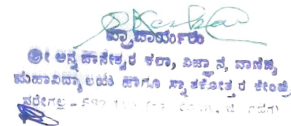 ಪ್ರಾಚಾರ್ಯರು
ಶ್ರೀ ಅನ್ನದಾನೇಶ್ವರ ಕಲಾ, ವಿಜ್ಞಾನ, ವಾಣಿಜ್ಯ
ಮಹಾವಿದ್ಯಾಲಯ ಹಾಗೂ ಸ್ನಾತಕೋತ್ತರ ಕೇಂದ್ರ
ನರೇಗಲ್ಲ -